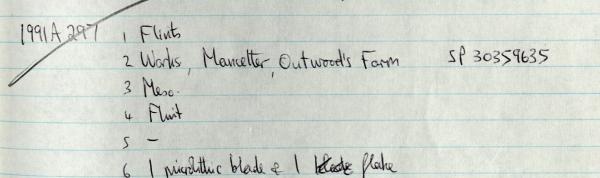 1991A 297 1 Flints
2 Warks, Mancetter, Outwood's Farm SP 30359635
3 Meso.
4 Flint
5 -
6 1 microlithic blade & 1 blade flake